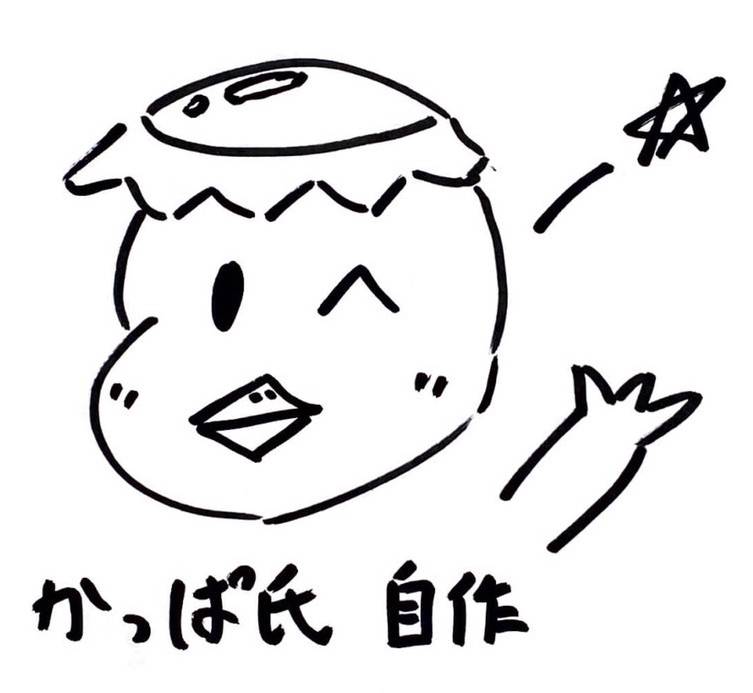 かっぱ氏 自作